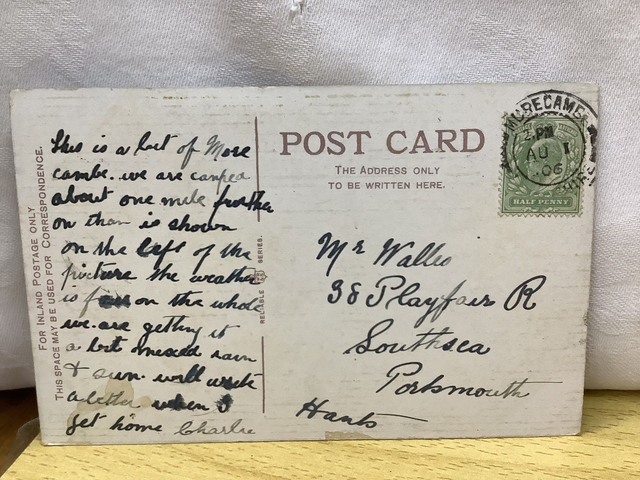 FOR INLAND POSTAGE ONLY
THIS SPACE MAY BE USED FOR CORRESPONDENCE.
This is a bit of More
cambe. we are camped
about one mile further
on than is shown
on the left of the
picture the weather
is on the whole
we are getting it
a bit mixed rain
& sun will write
a letter when I
get home Charlie
RELIABLE SERIES.
POST CARD
THE ADDRESS ONLY
TO BE WRITTEN HERE.
MORECAMBE
PM
AU 1
06
HALF PENNY
Mr Wallis
38 Playfair R
Southsea
Portsmouth
Hants